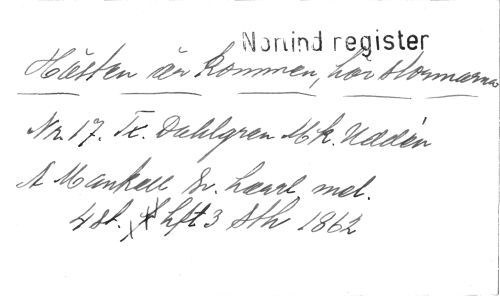 Nonind register
Hösten är kommen, hör stormarna
Nr. 17. Tx. Dahlgren Mk. Uddén
A Mankell Sv. mel.
4 st. hft 3 Sth 1862